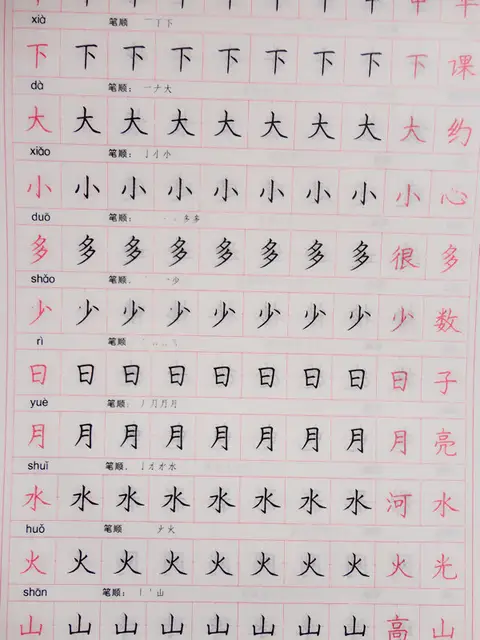 xià 笔顺 一丅下
下 下 下 下 下 下 下 下 下 课
dà 笔顺: 一ナ大
大 大 大 大 大 大 大 大 大 约
xiǎo 笔顺: 亅小小
小 小 小 小 小 小 小 小 小 心
duō 笔顺: 多多
多 多 多 多 多 多 多 多 很 多
shǎo 笔顺: 少
少 少 少 少 少 少 少 少 少 数
rì 笔顺
日 日 日 日 日 日 日 日 日 子
yuè 笔顺: 丿月月月
月 月 月 月 月 月 月 月 月 亮
shuǐ 笔顺: 水
水 水 水 水 水 水 水 水 河 水
huǒ 笔顺 火
火 火 火 火 火 火 火 火 火 光
shān 笔顺: 山
山 山 山 山 山 山 山 山 高 山